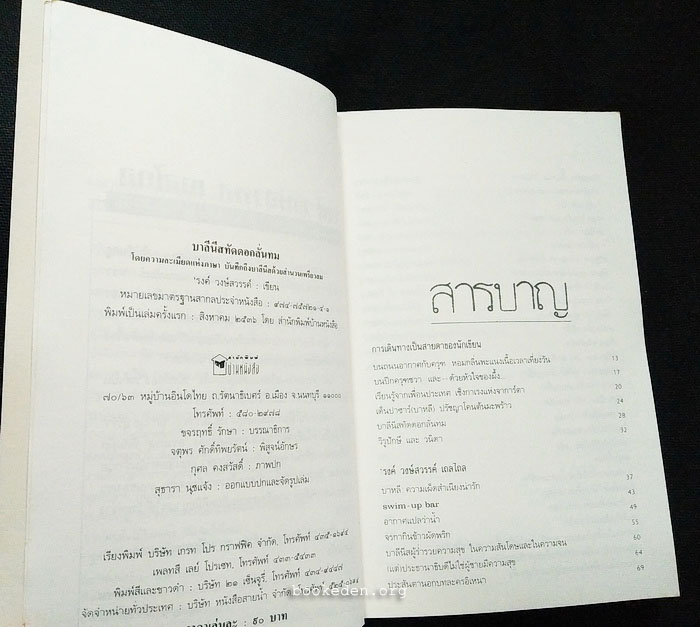 บาลีนีสทัดดอกลั่นทม
โดยความละเมียดแห่งภาษา บันทึกถึงบาลีนีสด้วยสำนวนเพรียวลม
'รงค์ วงษ์สวรรค์ : เขียน
หมายเลขมาตรฐานสากลประจำหนังสือ : ๙๗๔-๗๕๗๒๑-๔-๑
พิมพ์เป็นเล่มครั้งแรก : สิงหาคม ๒๕๓๖ โดย สำนักพิมพ์บ้านหนังสือ
สำนักพิมพ์
บ้านหนังสือ
๗๐/๖๓ หมู่บ้านอินโดไทย ถ.รัตนาธิเบศร์ อ.เมือง จ.นนทบุรี ๑๑๐๐๐
โทรศัพท์ : ๕๘๐-๒๙๗๘
ขจรฤทธิ์ รักษา : บรรณาธิการ
จตุพร ศักดิ์ทิพยรัตน์ : พิสูจน์อักษร
กุศล คงสวัสดิ์ : ภาพปก
สุธารา นุชแจ้ง : ออกแบบปกและจัดรูปเล่ม
เรียงพิมพ์ บริษัท เกรท โปร กราฟฟิค จำกัด. โทรศัพท์ ๔๓๕-๑๖๙๔
เพลทสี เลย์ โปรเซท. โทรศัพท์ ๔๓๓-๕๔๓๓
พิมพ์สีและขาวดำ : บริษัท ๒๑ เซ็นจูรี่. โทรศัพท์ ๔๓๔-๙๔๔๗
จัดจำหน่ายทั่วประเทศ : บริษัท หนังสือสายน้ำ จำกัด โทรศัพท์
ละ : ๙๐ บาท
สารบาญ
การเดินทางเป็นสายตาของนักเขียน
บนถนนอากาศกับครุฑ หอมกลิ่นพะแนงเนื้อเวลาเที่ยงวัน 13
บนปีกครุฑชวา และ...ด้วยหัวใจของผึ้ง... 17
เรียนรู้จากเพื่อนประเทศ เซ็งกาเรงแห่งจาการ์ตา 20
เด็นปาซาร์(บาหลี) ปรัชญาโคนต้นมะพร้าว 24
บาลีนีสทัดดอกลั่นทม 28
วิรุปักษ์ และ วนิดา 32
'รงค์ วงษ์สวรรค์ เถลไถล
บาหลี ความเผ็ดสำเนียงน่ารัก 37
swim-up bar 43
อากาศแปลว่าน้ำ 49
จรกากินข้าวผัดพริก 53
บาลีนีสผู้ร่ำรวยความสุข ในความสันโดษและในความจน 60
(แต่)ประธานาธิบดีไม่ใช่ผู้ชายมีความสุข 64
ประสันตานอกบทละครอิเหนา 69
bookeden.org